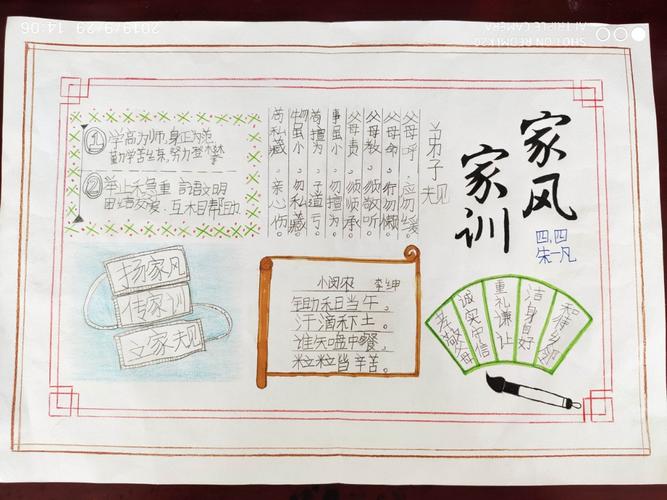 2019/9/29 14:06
SHOT ON REDMI K20
AI TRIPLE CAMERA
家风
家训
四.四
朱一凡
弟子规
父母呼,应勿缓。
父母命,行勿懒。
父母教,须敬听。
父母责,须顺承。
事虽小,勿擅为。
苟擅为,子道亏。
物虽小,勿私藏。
苟私藏,亲心伤。
① 学高为师,身正为范
勤学苦练,努力登攀
② 举止稳重 言语文明
团结友爱、互相帮助
扬家风
传家训
立家规
小闵农 李绅
锄禾日当午。
汗滴禾下土。
谁知盘中餐。
粒粒皆辛苦。
孝敬父母
诚实守信
重礼谦让
洁身自好
乡邻